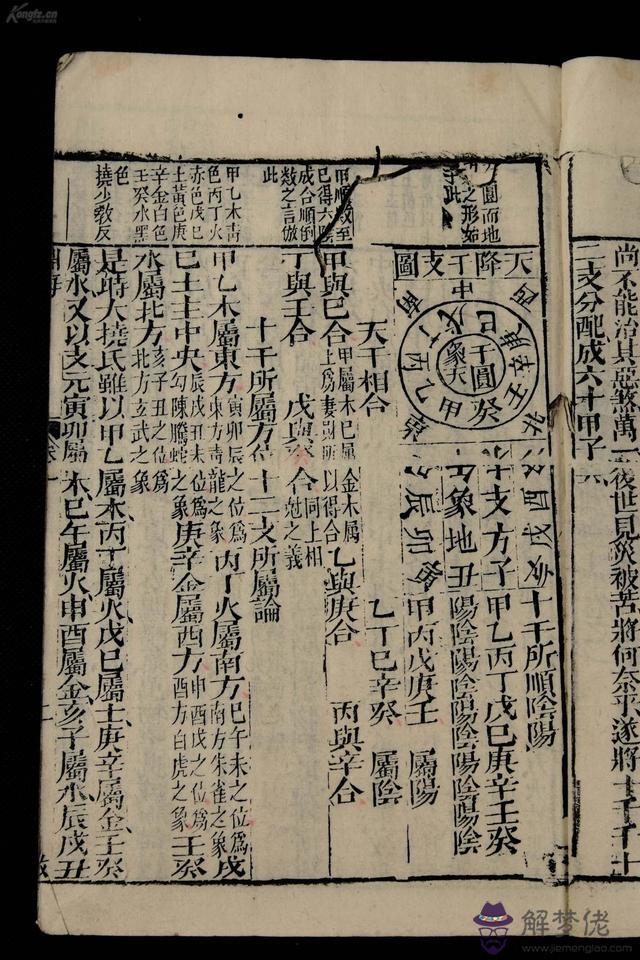 Kongfz.cn
尚不能治其惡煞萬一後世見災被苦將何奈乎遂將十干十
二支分配成六十甲子
天降干支圖
干圓象天
甲乙丙丁戊己庚辛壬癸
十支方子
象地丑
十干所順陰陽
甲乙丙丁戊己庚辛壬癸
陽陰陽陰陽陰陽陰陽陰
甲丙戊庚壬 屬陽
乙丁己辛癸 屬陰
天干相合
甲與己合 乙與庚合 丙與辛合
丁與壬合 戊與癸合 同上相尅之義
十干所屬方位 十二支所屬論
甲乙木屬東方 寅卯辰之位為東方青龍之象 丙丁火屬南方 巳午未之位為南方朱雀之象 戊
己土主中央 辰戌丑未位為勾陳螣蛇之象 庚辛金屬西方 申酉戌之位為西方白虎之象 壬癸
水屬北方 亥子丑之位為北方玄武之象
是時大撓氏雖以甲乙屬木丙丁屬火戊己屬土庚辛屬金壬癸
屬水又以支元寅卯屬木巳午屬火申酉屬金亥子屬水辰戌丑
甲順數至
己得六陰
成合順倒
數之言倣
此
甲乙木青
色丙丁火
赤色戊己
土黃色庚
辛金白色
壬癸水黑
色
撓少教反
解梦佬
www.jiemenglao.com